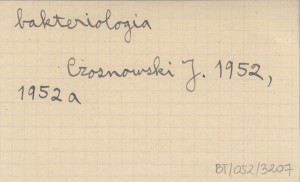 bakteriologia
Czosnowski J. 1952,
1952a
BT/052/3207